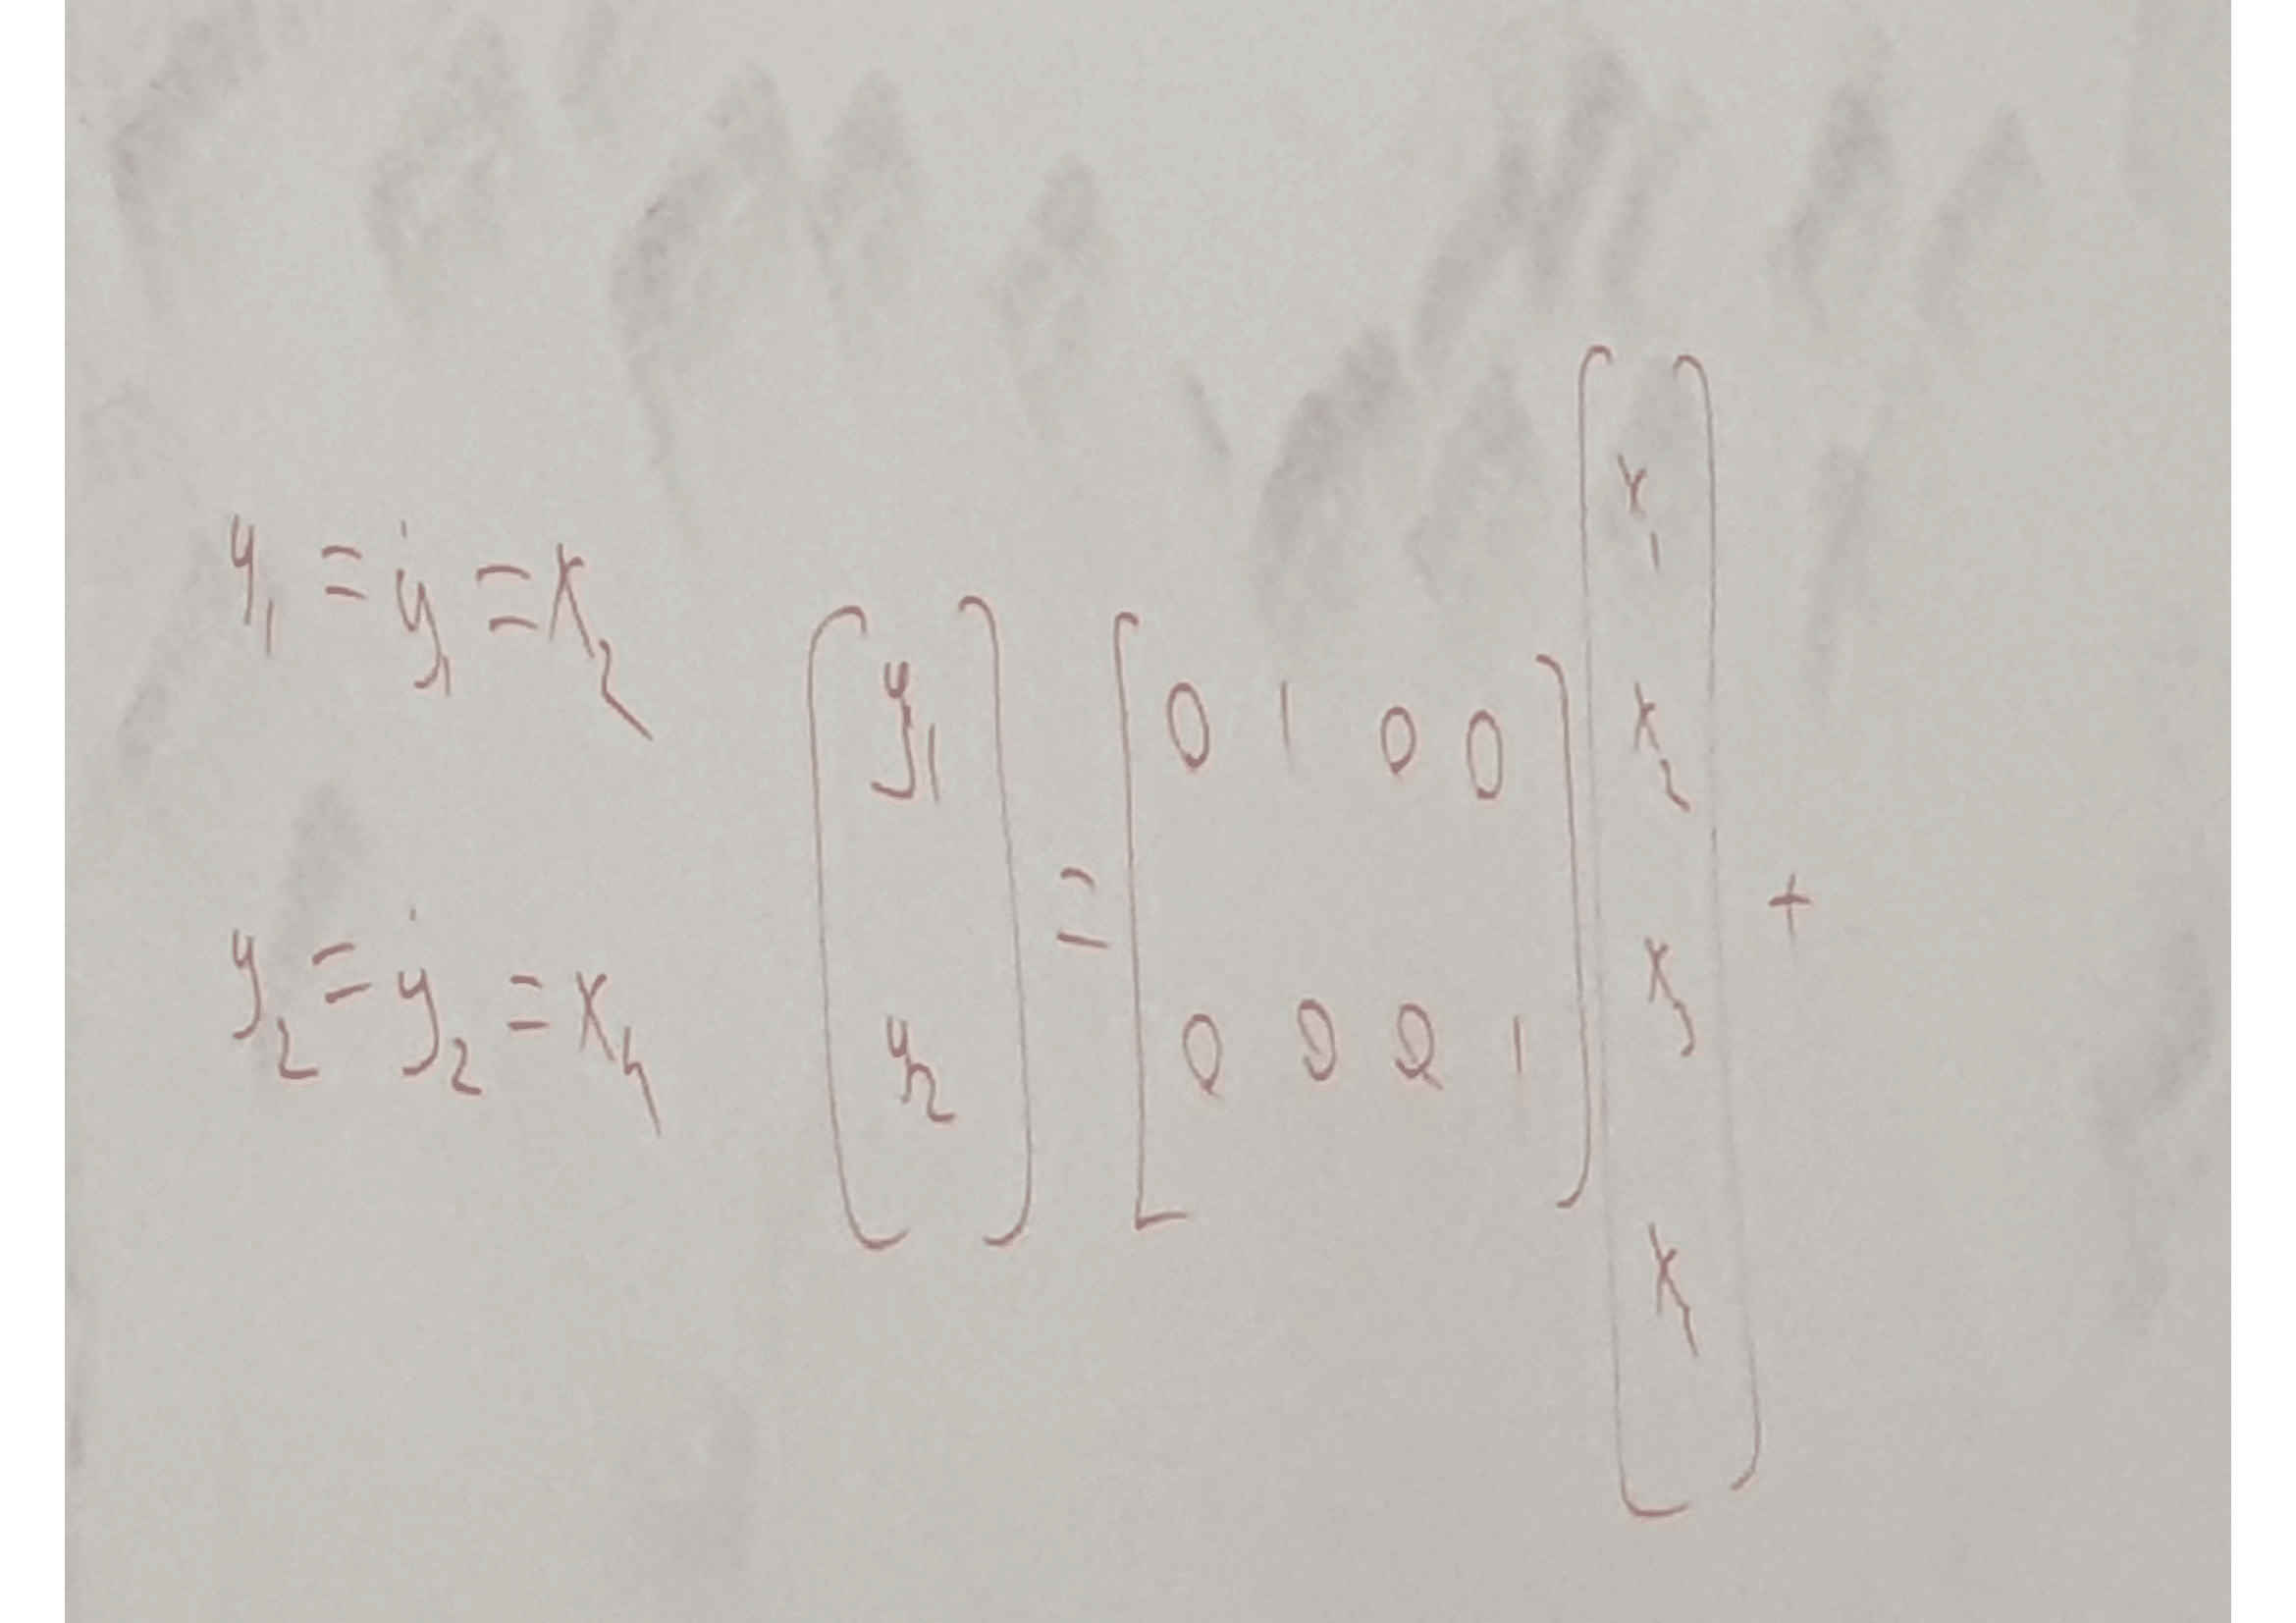 y₁ = ẏ₁ = x₂
y₂ = ẏ₂ = x₄
[y₁ y₂] = [0 1 0 0
0 0 0 1] [x₁ x₂ x₃ x₄] +